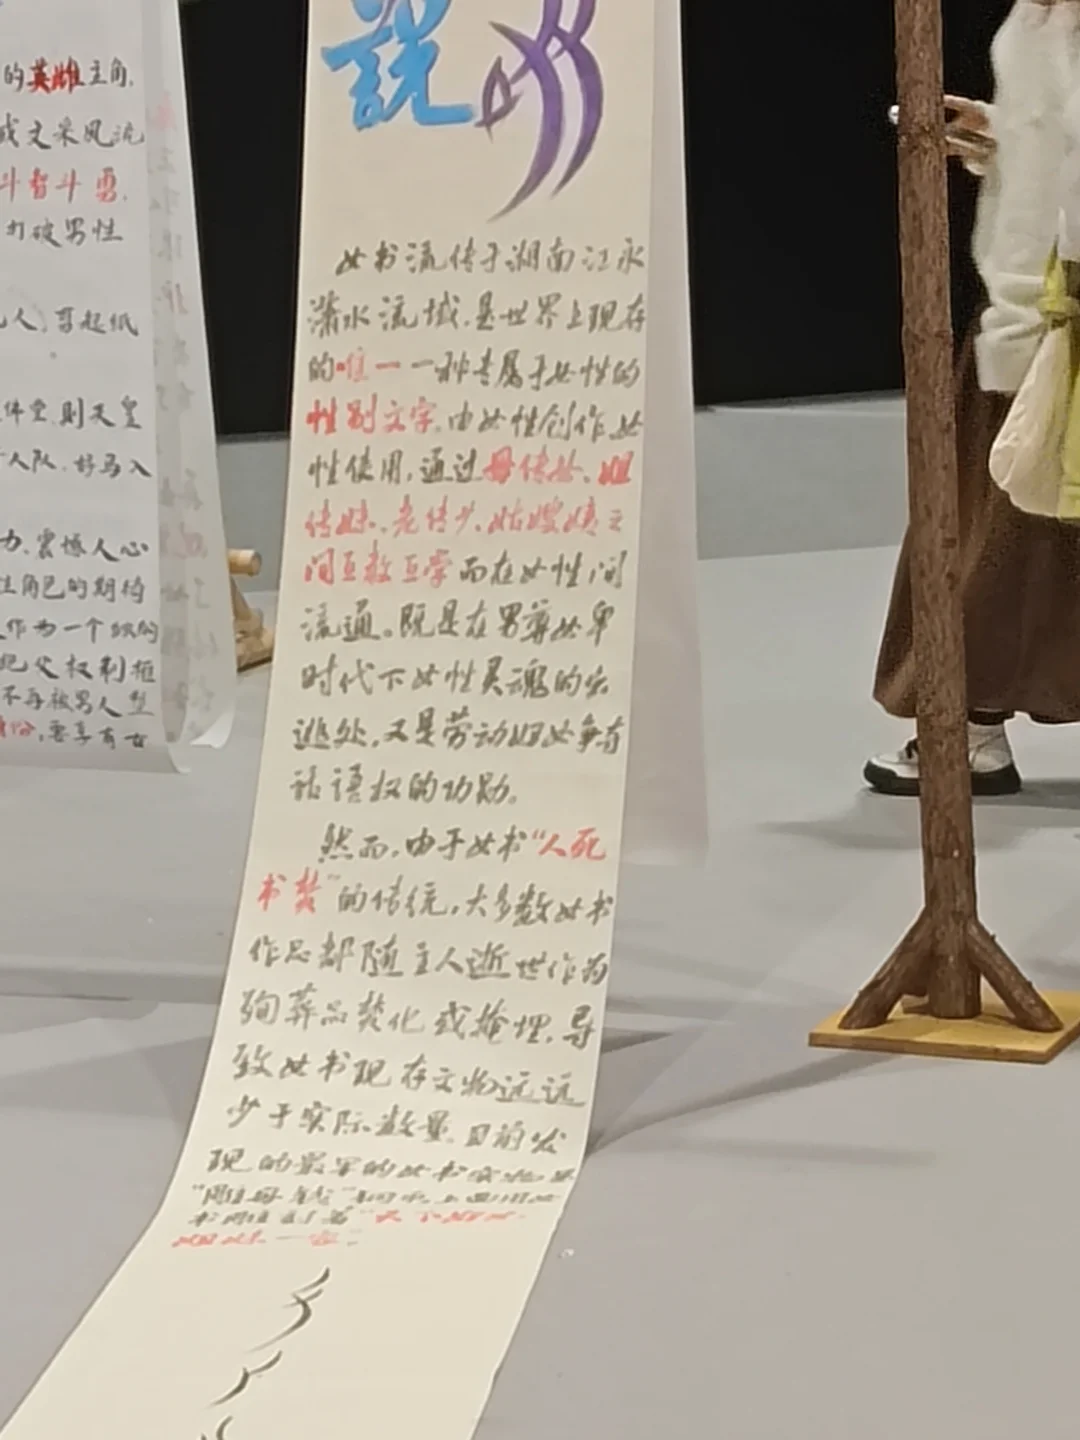 的英雄主角,
成文采风流
斗智斗勇,
打破男性
人,哥起纸
佛堂,则天皇
人队,好马入
力,震撼人心
角色的期待
作为一个
把父权制框
不再被男人
要享有女
説
女书流传于湖南江永
潇水流域,是世界上现存
的唯一一种专属于女性的
性别文字,由女性创作,女
性使用,通过母传女、姐
传妹、老传少、姑嫂姨之
间互教互学而在女性间
流通。既是在男尊女卑
时代下女性灵魂的出
逃处,又是劳动妇女争夺
话语权的功勋。
然而,由于女书“人死
书焚”的传统,大多数女书
作品都随主人逝世作为
殉葬品焚化或掩埋,导
致女书现存文物远远
少于实际数量。目前发
现的最早的女书实物是
“雕母钱”
书
姐妹一家”